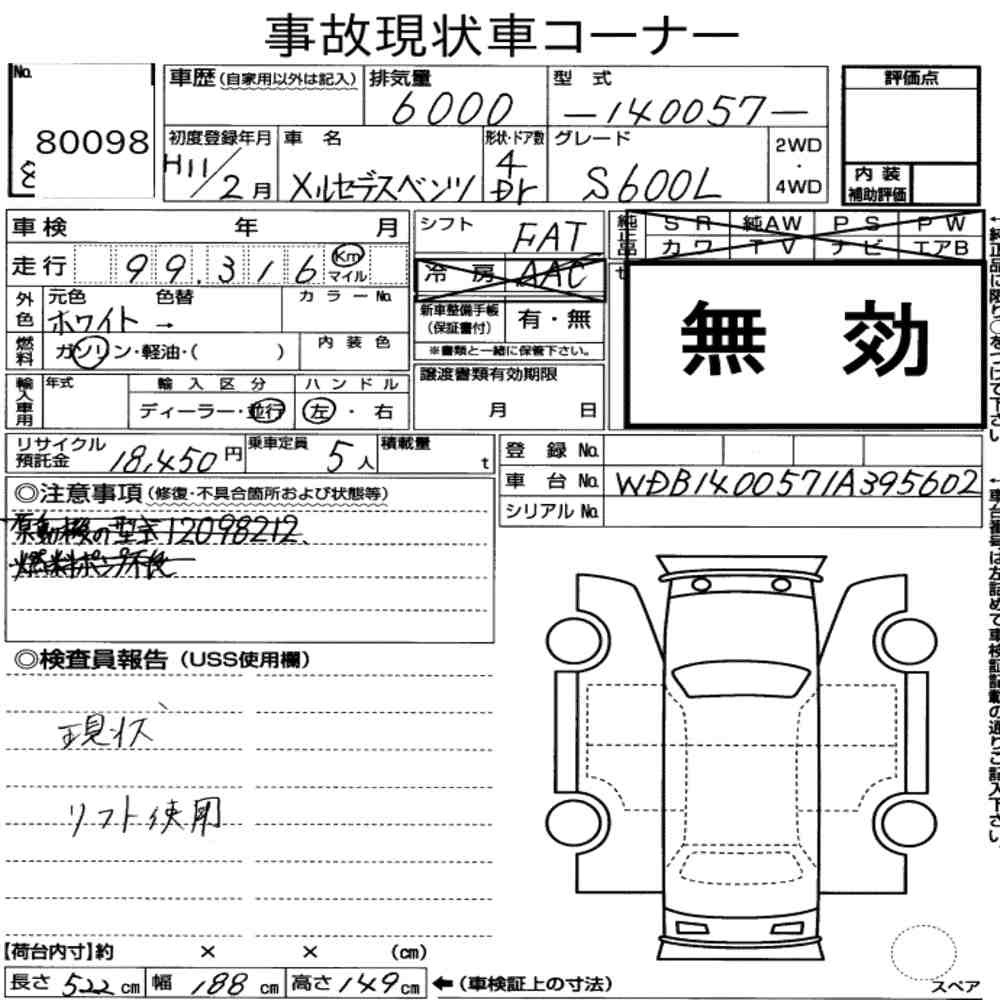 事故現状車コーナー
No. 80098
車歴(自家用以外は記入) 排気量 6000 型式 -140057- 評価点
初度登録年月 H11/2月 車名 メルセデスベンツ 形状・ドア数 4Dr グレード S600L 2WD・4WD
内装補助評価
車検 年 月 シフト FAT 純正品 SR 純AW PS PW
カワ TV ナビ エアB
走行 99,316 Km マイル 冷房 AAC
外色 元色 色替 カラーNo.
ホワイト →
新車整備手帳(保証書付) 有・無
※書類と一緒に保管下さい。
無効
燃料 ガソリン・軽油・( ) 内装色
輸入車用 年式 輸入区分 ハンドル
ディーラー・並行 左・右
譲渡書類有効期限
月 日
リサイクル預託金 18,450円 乗車定員 5人 積載量 t
登録No.
車台No. WDB1400571A395602
シリアルNo.
◎注意事項(修復・不具合箇所および状態等)
原動機の型式12098212
燃料ポンプ不良
◎検査員報告(USS使用欄)
現状
リフト使用
【荷台内寸】約 × × (cm)
長さ522cm 幅188cm 高さ149cm ←(車検証上の寸法)
スペア
←純正品に限り○をつけて下さい
←車台番号は左詰めで車検証記載の通りご記入下さい。